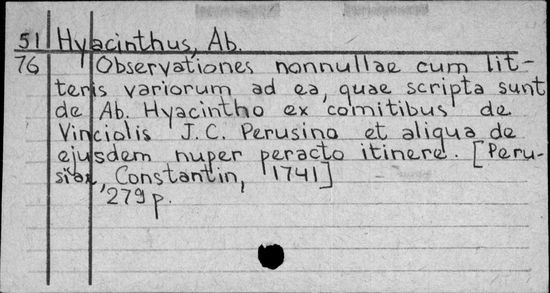 51 Hyacinthus, Ab.
76 Observationes nonnullae cum lit-
teris variorum ad ea, quae scripta sunt
de Ab. Hyacintho ex comitibus de
Vinciolis J.C. Perusino et aliqua de
ejusdem nuper peracto itinere. [Peru-
siae, Constantin, 1741]
279 p.